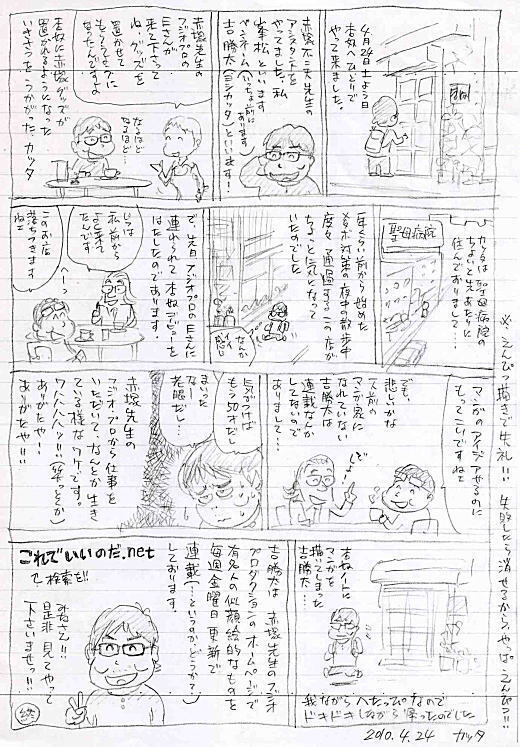 ※えんぴつ描きで失礼!!! 失敗したら消せるから、やっぱえんぴつ!!
4月24日土よう日
杏奴へひとりで
やって来ました。
赤塚不二夫先生の
アシスタントを
やってました、私
峯松といいます
ペンネーム
吉勝太(ヨシカッタ)といいます!
赤塚先生の
フジオプロの
Eさんが
来て下さって
ね、グッズを
置かせて
もらうように
なったんですよ
なるほど
なるほど…
杏奴に赤塚グッズが
置かれるようになった
いきさつをうかがった、カッタ
聖母病院
カッタは聖母病院の
ちょいと先あたりに
住んでおりまして…
年くらい前から始めた
メタボ対策の夜中の散歩中
度々通過するこの店が
ちょっと気になって
いたのでした
なんか
イイ
感じ
で、先日フジオプロのEさんに
連れられて杏奴デビューを
はたしたのであります。
いつは
私前から
よく来て
たんです
へーっ
このお店
落ちつきます
ねェ
マンガのアイデアねるのに
もってこいですねェ
でも、
悲しいかな
一人前の
マンガ家に
なれていない
吉勝太は
連載なんか
してないので
ありまして…
気がつけば
もう50才だし
まいった
なー
老眼だし…
赤塚先生の
フジオ・プロから仕事を
いただいて、なんとか生き
ている様なワケです。
ワハハハハッ!!(笑っとこか)
ありがたや…!
ありがたや!!!
杏奴イーに
マンガを
描いてしまった
吉勝太…
我ながらへたっぴなので
ドキドキしながら帰ったのでした
吉勝太は赤塚先生のフジオ
プロダクションのホームページで
有名人の似顔絵的なものを
毎週金曜日更新で
連載(…というのかどうか?)
しております。
これでいいのだ.net
で検索を!!
みなさん!!
是非見てやって
下さいませっ!!!
終
2010.4.24 カッタ